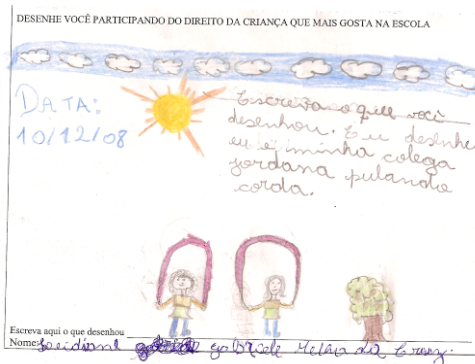 DESENHE VOCÊ PARTICIPANDO DO DIREITO DA CRIANÇA QUE MAIS GOSTA NA ESCOLA
DATA:
10/12/08
Escreva o que você
desenhou. Eu desenhe
eu e iminha colega
jordana pulando
corda.
Escreva aqui o que desenhou
Nome: gabriele